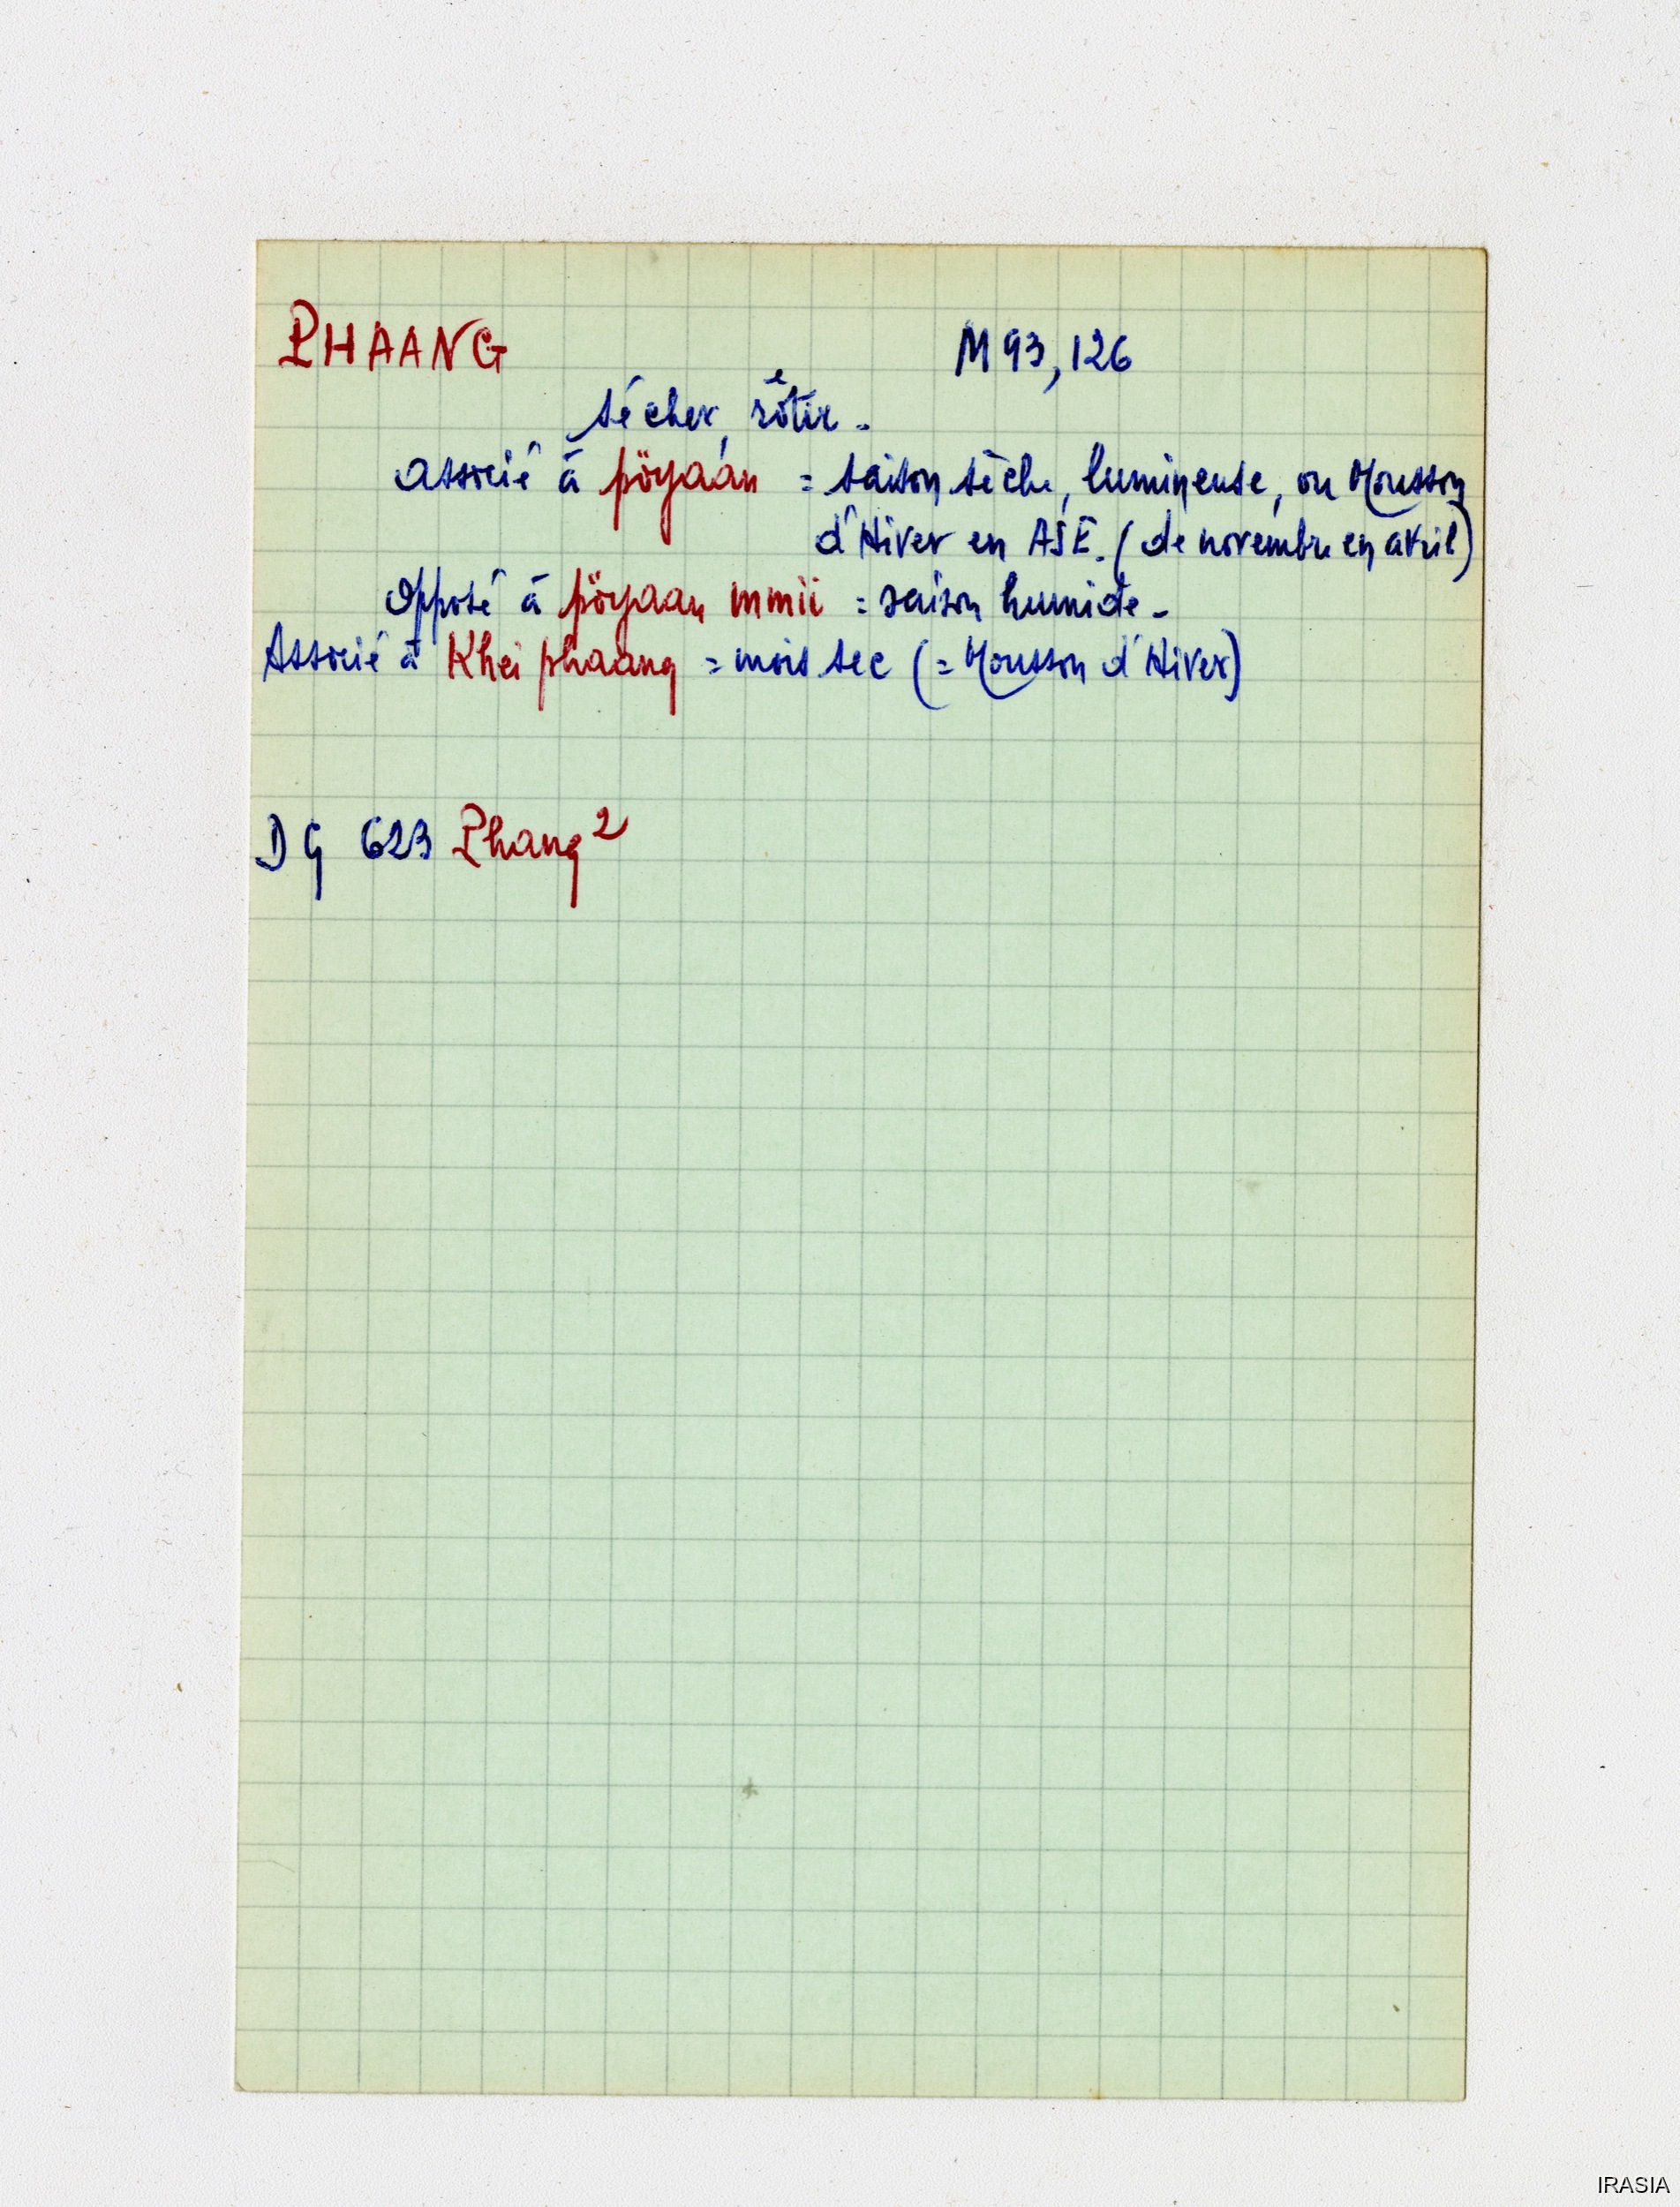 PHAANG M 93, 126
sécher, rôtir.
associé à pöyaán = saison sèche, lumineuse, ou Mousson
d'Hiver en ASE. (de novembre en avril)
opposé à pöyaan mmii = saison humide.
Associé à Khei phaang = mois sec (= Mousson d'Hiver)
DG 623 Phang²
IRASIA